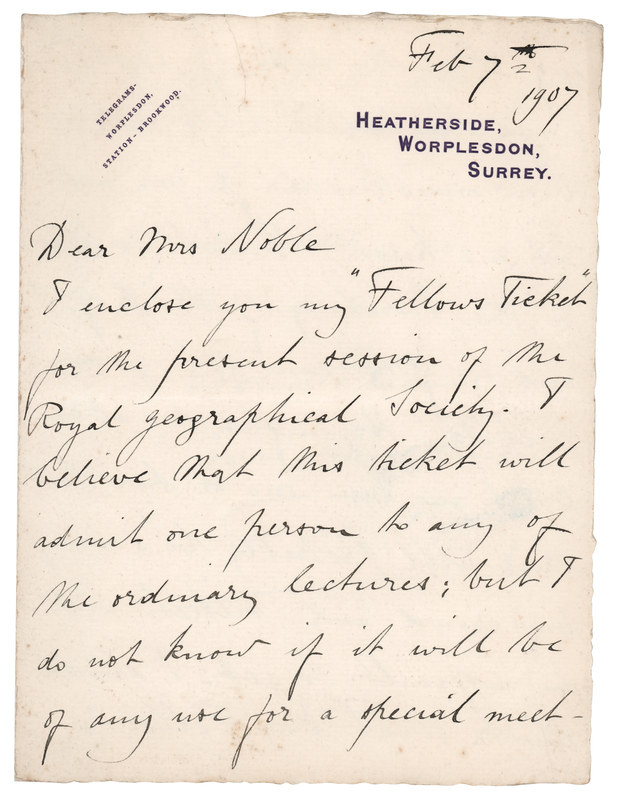 Feb 7th
1907
TELEGRAMS-
WORPLESDON.
STATION - BROOKWOOD.
HEATHERSIDE,
WORPLESDON,
SURREY.
Dear Mrs Noble
I enclose you my "Fellows Ticket"
for the present session of the
Royal Geographical Society. I
believe that this ticket will
admit one person to any of
the ordinary lectures; but I
do not know if it will be
of any use for a special meet-